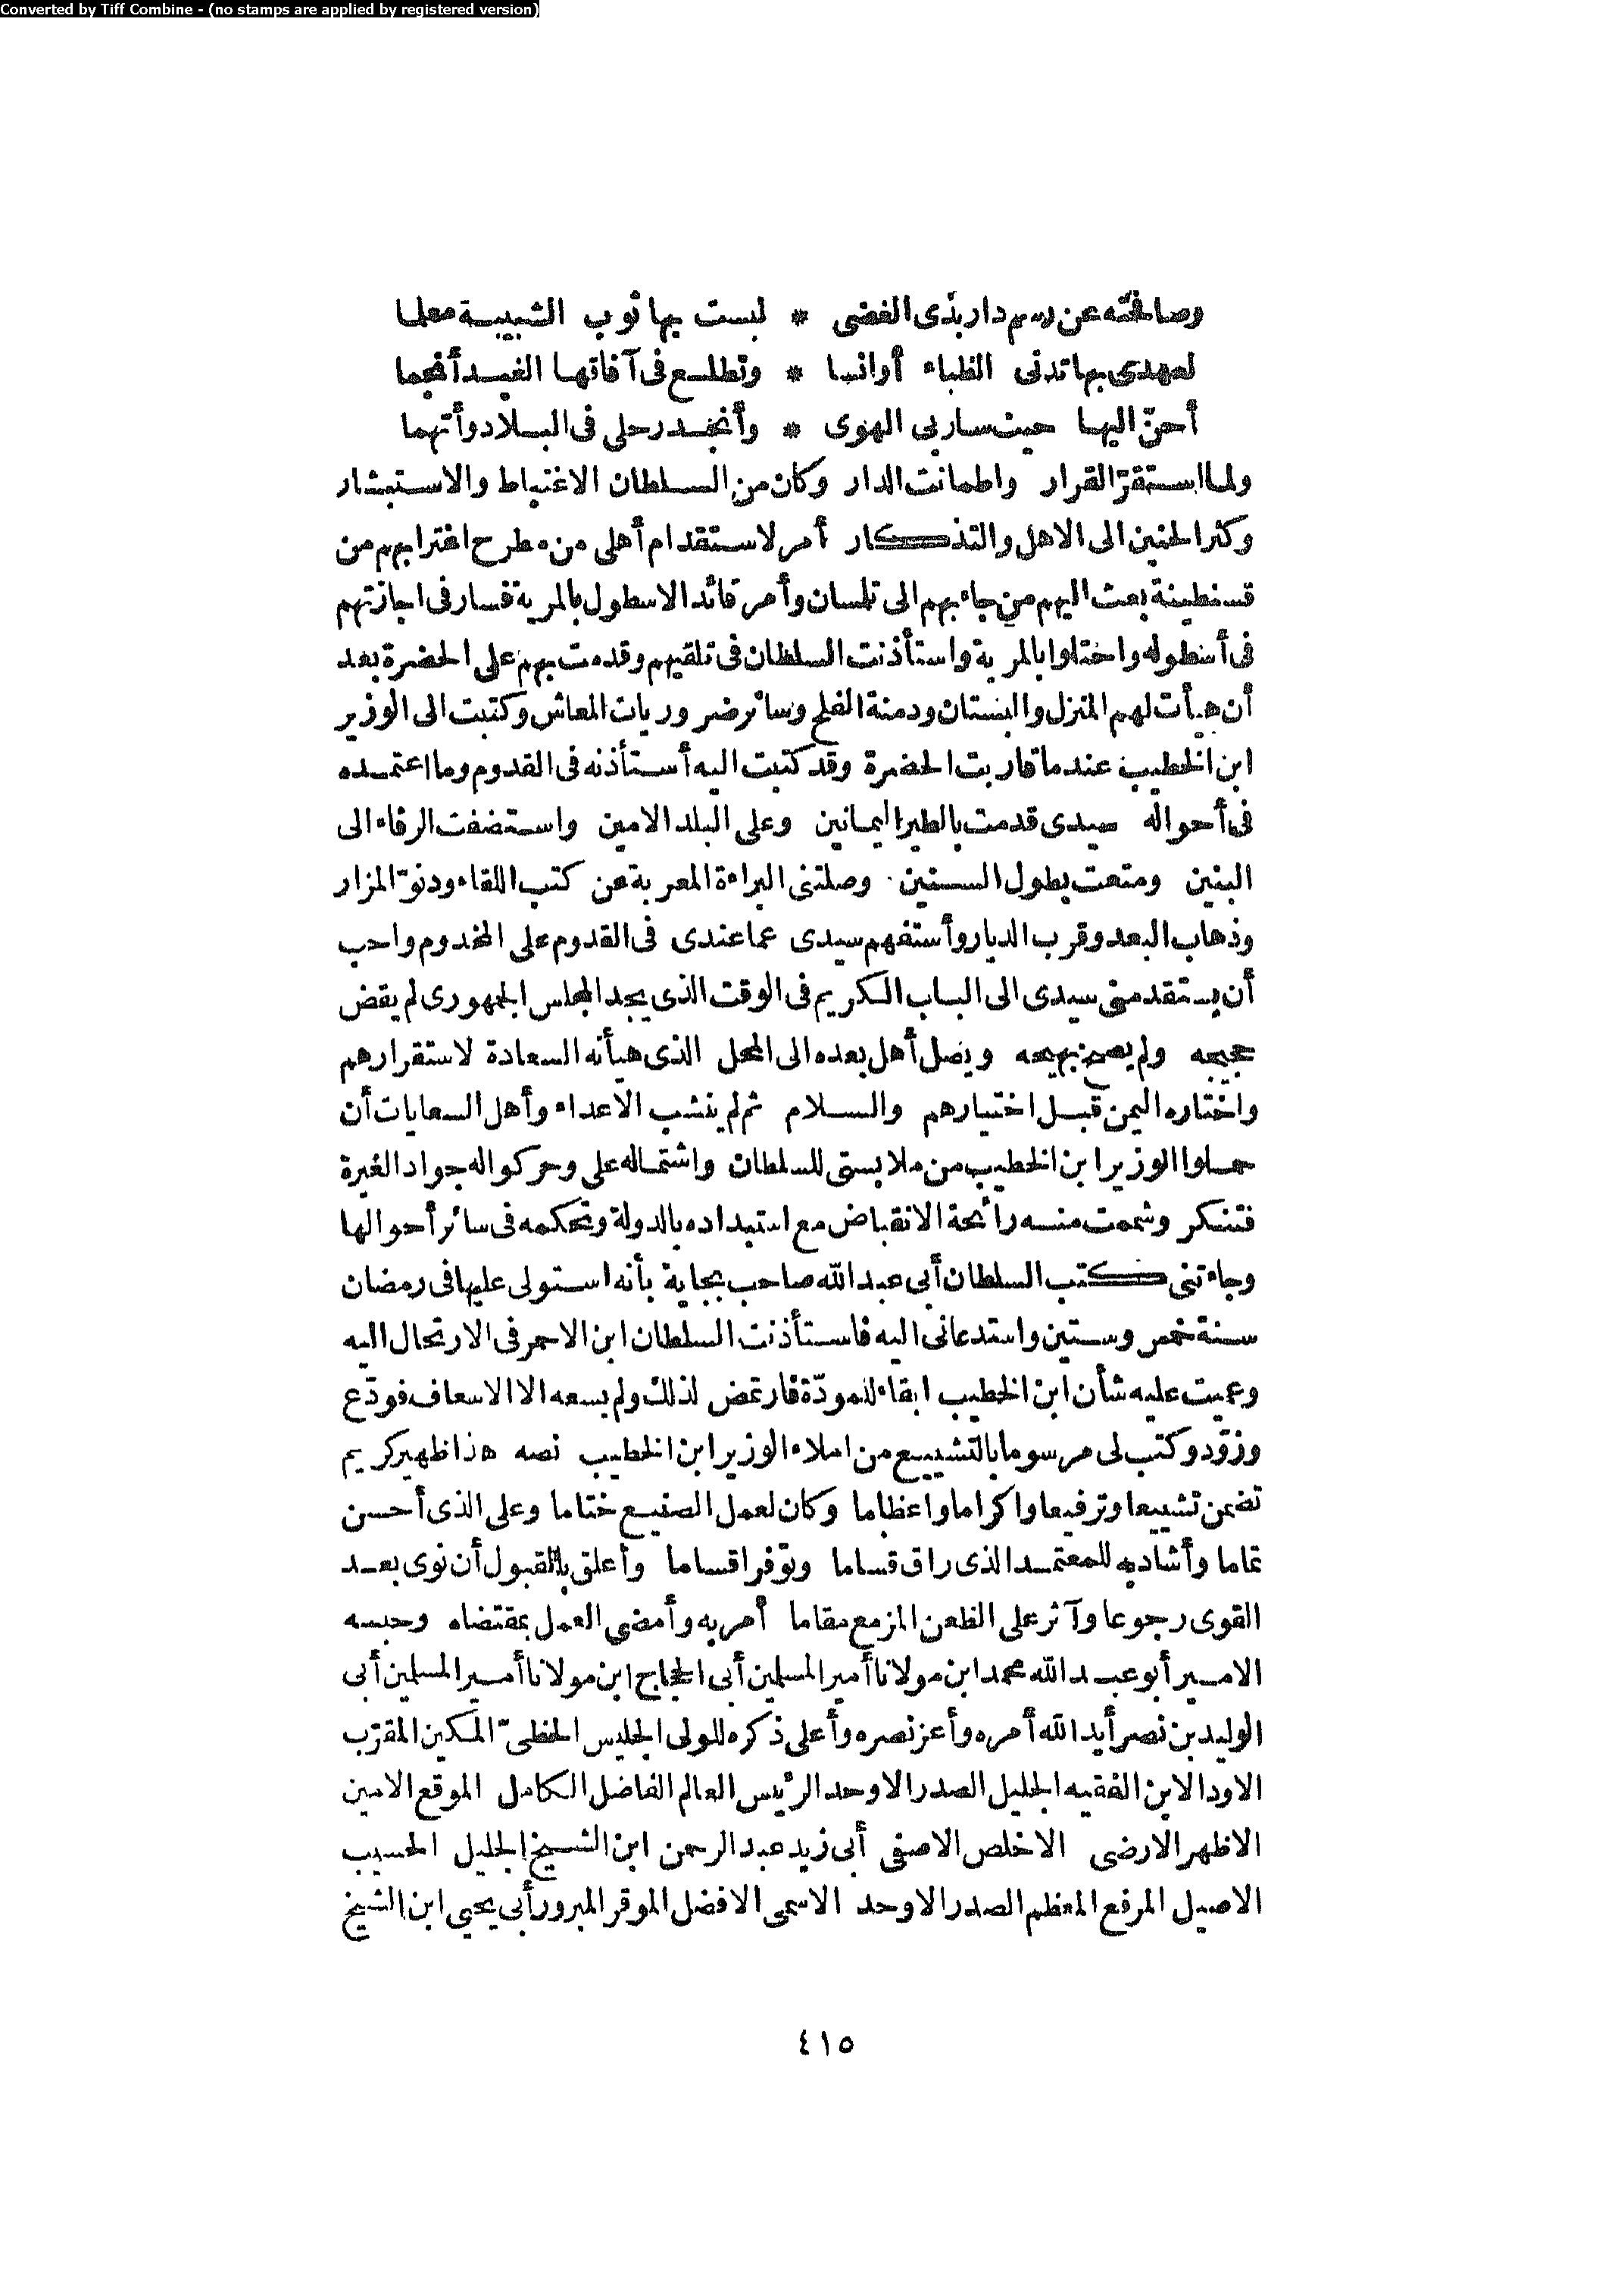 Converted by Tiff Combine - (no stamps are applied by registered version)
وصافحته عن رسم دار بذى الغضى * لبست بها ثوب الشبيبة معلما
لعهدى بها تدنى الظباء أوانسا * وتطلع فى آفاقها الغيد أنجما
أحنّ اليها حيث سار بى الهوى * وأنجد رحلى فى البلاد وأتهما
ولما استقرّ القرار واطمانت الدار وكان من السلطان الاغتباط والاستبشار
وكثر الحنين الى الاهل والتذكار أمر لاستقدام أهلى من مطرح اغترابهم من
قسنطينة بعث اليهم من جاء بهم الى تلمسان وأمر قائد الاسطول بالمرية فسار فى اجازتهم
فى أسطوله واحتلوا بالمرية واستأذنت السلطان فى تلقيهم وقدمت بهم على الحضرة بعد
أن هيأت لهم المنزل والبستان ودمنة الفلح وسائر ضروريات المعاش وكتبت الى الوزير
ابن الخطيب عندما قاربت الحضرة وقد كتبت اليه أستأذنه فى القدوم وما اعتمده
فى أحواله سيدى قدمت بالطير اليمانين وعلى البلد الامين واستضفت الرفاء الى
البنين ومتعت بطول السنين وصلتنى البراءة المعربة عن كتب اللقاء ودنوّ المزار
وذهاب البعد وقرب الديار وأستفهم سيدى عما عندى فى القدوم على المخدوم واحب
أن يستقدمنى سيدى الى الباب الكريم فى الوقت الذى يجد المجلس الجمهورى لم يقض
حجيجه ولم يصح بهيجه ويصل أهل بعده الى المحل الذى هيأته السعادة لاستقرارهم
واختاره اليمن قبل اختيارهم والسلام ثم لم ينشب الاعداء وأهل السعايات أن
حملوا الوزير ابن الخطيب من ملابستى للسلطان واشتماله على وحركوا له جواد الغيرة
فتنكر وشممت منه رائحة الانقباض مع استبداده بالدولة وتحكمه فى سائر أحوالها
وجاءتنى كتب السلطان أبى عبد الله صاحب بجاية بأنه استولى عليها فى رمضان
سنة خمس وستين واستدعانى اليه فاستأذنت السلطان ابن الاحمر فى الارتحال اليه
وعميت عليه شأن ابن الخطيب ابقاء للمودّة فارتمض لذلك ولم يسعه الا الاسعاف فودّع
وزوّد وكتب لى مرسوما بالتشييع من املاء الوزير ابن الخطيب نصه هذا ظهير كريم
تضمن تشييعا وترفيعا واكراما واعظاما وكان لعمل الصنيع ختاما وعلى الذى أحسن
تماما وأشاد به للمعتمد الذى راق قساما وتوفر اقساما وأعلق بالقبول أن نوى بعد
القوى رجوعا وآثر على الظعن المزمع مقاما أمر به وأمضى العمل بمقتضاه وحبسه
الامير أبو عبد الله محمد ابن مولانا أمير المسلمين أبى الحجاج ابن مولانا أمير المسلمين أبى
الوليد بن نصر أيد الله أمره وأعز نصره وأعلى ذكره للولى الجليس الحظىّ المكين المقرّب
الاود الابن الفقيه الجليل الصدر الاوحد الرئيس العالم الفاضل الكامل الموقع الامين
الاظهر الارضى الاخلص الاصفى أبى زيد عبد الرحمن ابن الشيخ الجليل الحسيب
الاصيل المرفع المعظم الصدر الاوحد الاسمى الافضل الموقر المبرور أبى يحيى ابن الشيخ
٤١٥